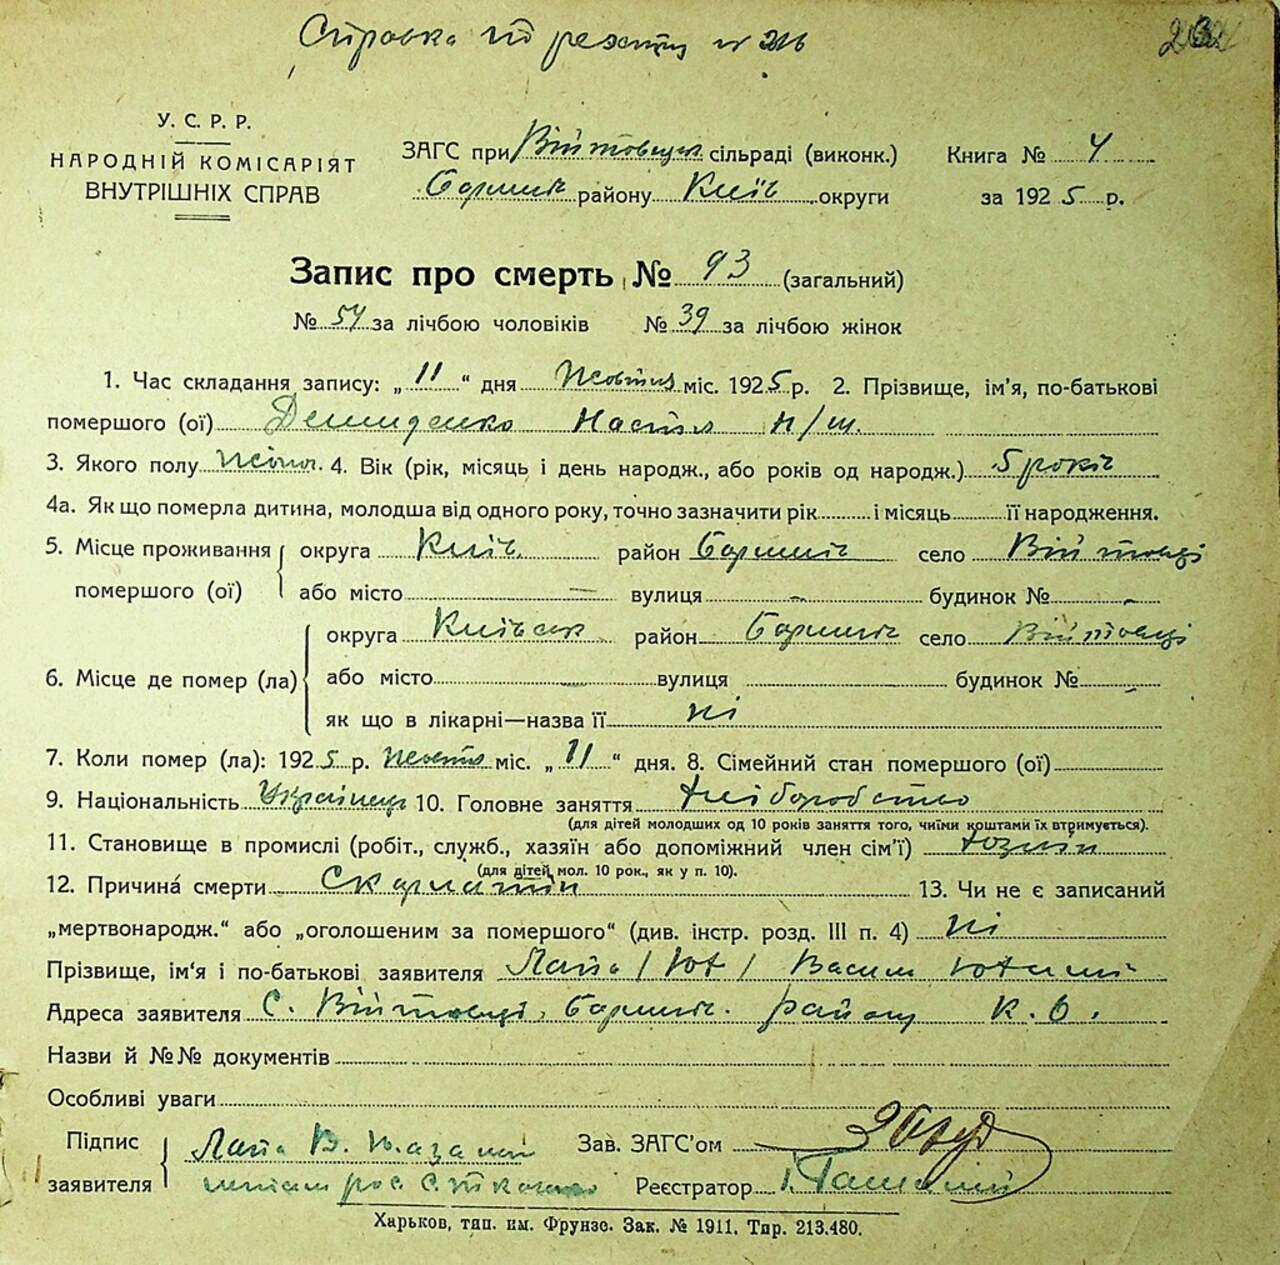 Справка по реэстру № 216
У. С. Р. Р.
НАРОДНІЙ КОМІСАРІЯТ
ВНУТРІШНІХ СПРАВ
ЗАГС при Війтовецьк сільраді (виконк.)
Баришів району Київ округи
Книга № 4
за 1925 р.
Запис про смерть № 93 (загальний)
№ 54 за лічбою чоловіків № 39 за лічбою жінок
1. Час складання запису: „11“ дня Жовтня міс. 1925 р. 2. Прізвище, ім'я, по-батькові
помершого (ої) Демиденко Настя н/ш.
3. Якого полу Жіноч. 4. Вік (рік, місяць і день народж., або років од народж.) 5 років
4а. Як що померла дитина, молодша від одного року, точно зазначити рік і місяць її народження.
5. Місце проживання помершого (ої) округа Київ. район Баришів село Війтовці
або місто — вулиця - будинок № -
6. Місце де помер (ла) округа Київськ район Баришів село Війтовці
або місто вулиця будинок №
як що в лікарні—назва її ні
7. Коли помер (ла): 1925 р. Жовтн міс. „11“ дня. 8. Сімейний стан помершого (ої)
9. Національність Українец 10. Головне заняття хліборобство
(для дітей молодших од 10 років заняття того, чиїми коштами їх втримується).
11. Становище в промислі (робіт., служб., хазяїн або допоміжний член сім'ї) хозяїн
(для дітей мол. 10 рок., як у п. 10).
12. Причина смерти Скарлатін 13. Чи не є записаний
„мертвонародж.“ або „оголошеним за помершого“ (див. інстр. розд. III п. 4) ні
Прізвище, ім'я і по-батькові заявителя Василь
Адреса заявителя С. Війтовці, Баришів. району К. О.
Назви й №№ документів
Особливі уваги
Підпис заявителя В.
Зав. ЗАГС'ом
Реєстратор
Харьков, тип. им. Фрунзе. Зак. № 1911. Тир. 213.480.